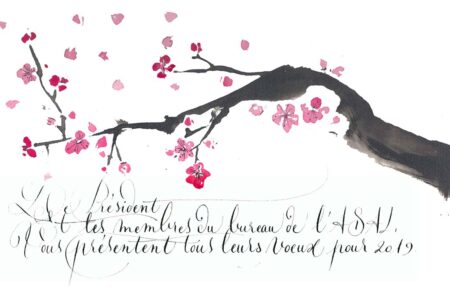 Le Président
Et les membres du bureau de l'ASAV,
Vous présentent tous leurs voeux pour 2019